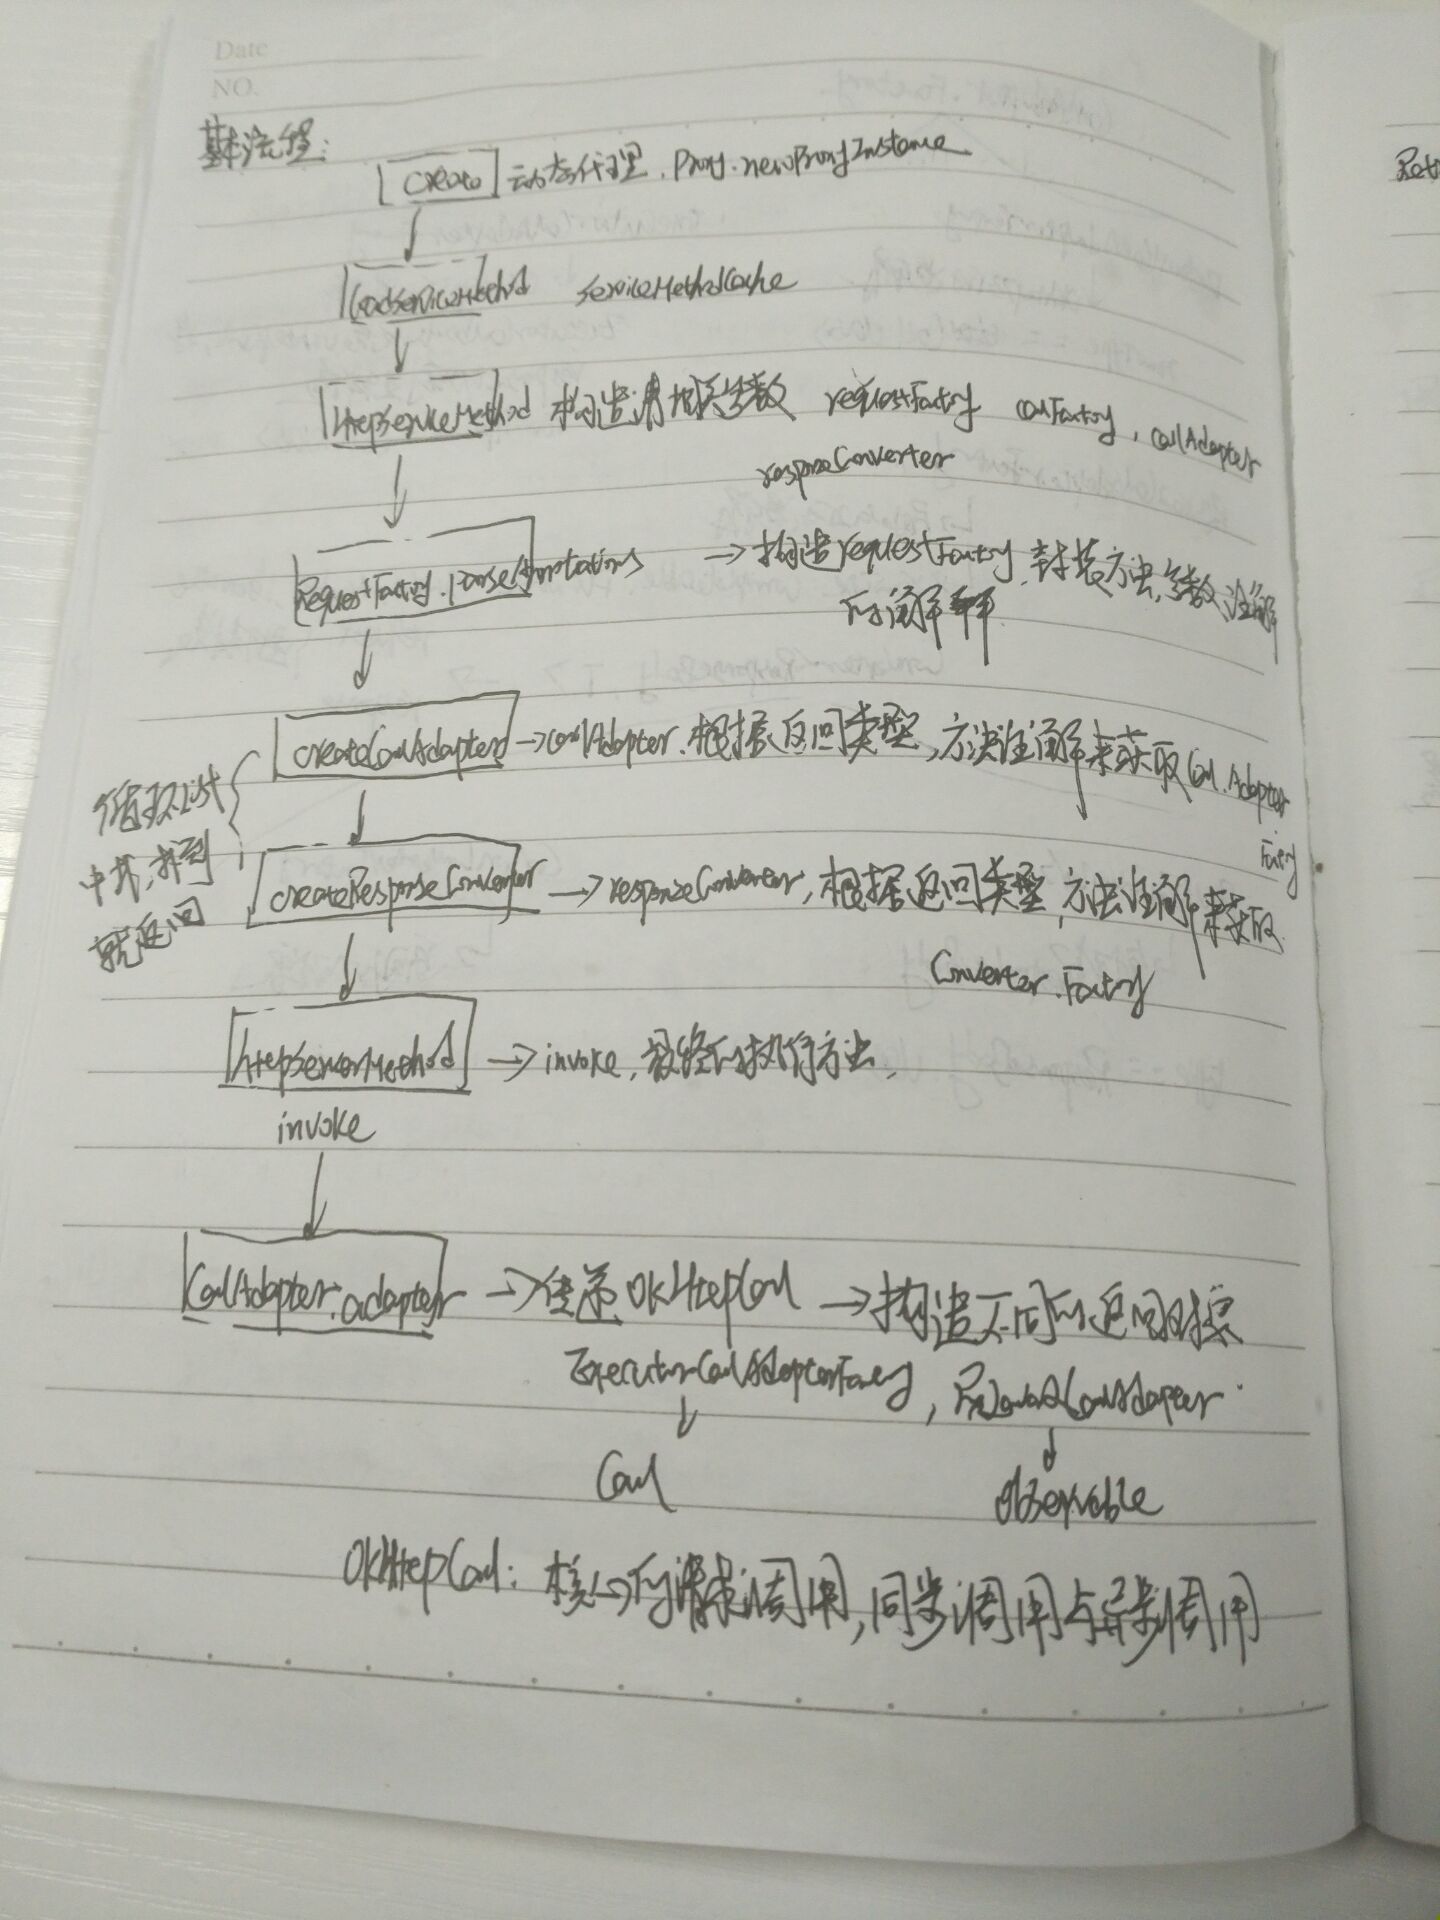 Date
NO.
基本流程:
create 动态代理. Proxy.newProxyInstance
loadServiceMethod serviceMethodCache
HttpServiceMethod 构造请求相关参数 requestFactory callFactory, callAdapter
responseConverter
RequestFactory.parseAnnotations → 构造requestFactory, 封装方法,参数注解
的解析
createCallAdapter → callAdapter. 根据返回类型, 方法注解来获取Call.Adapter
Factory
循环List
中找,找到
就返回
createResponseConverter → responseConverter, 根据返回类型, 方法注解来获取
Converter.Factory
HttpServiceMethod → invoke, 最终的执行方法,
invoke
CallAdapter.adapter → 传递OKHttpCall → 构造不同的返回对象
ExecutorCallAdapterFactory, RxJava2CallAdapter.
Call
Observable
OKHttpCall: 核心的请求调用, 同步调用与异步调用